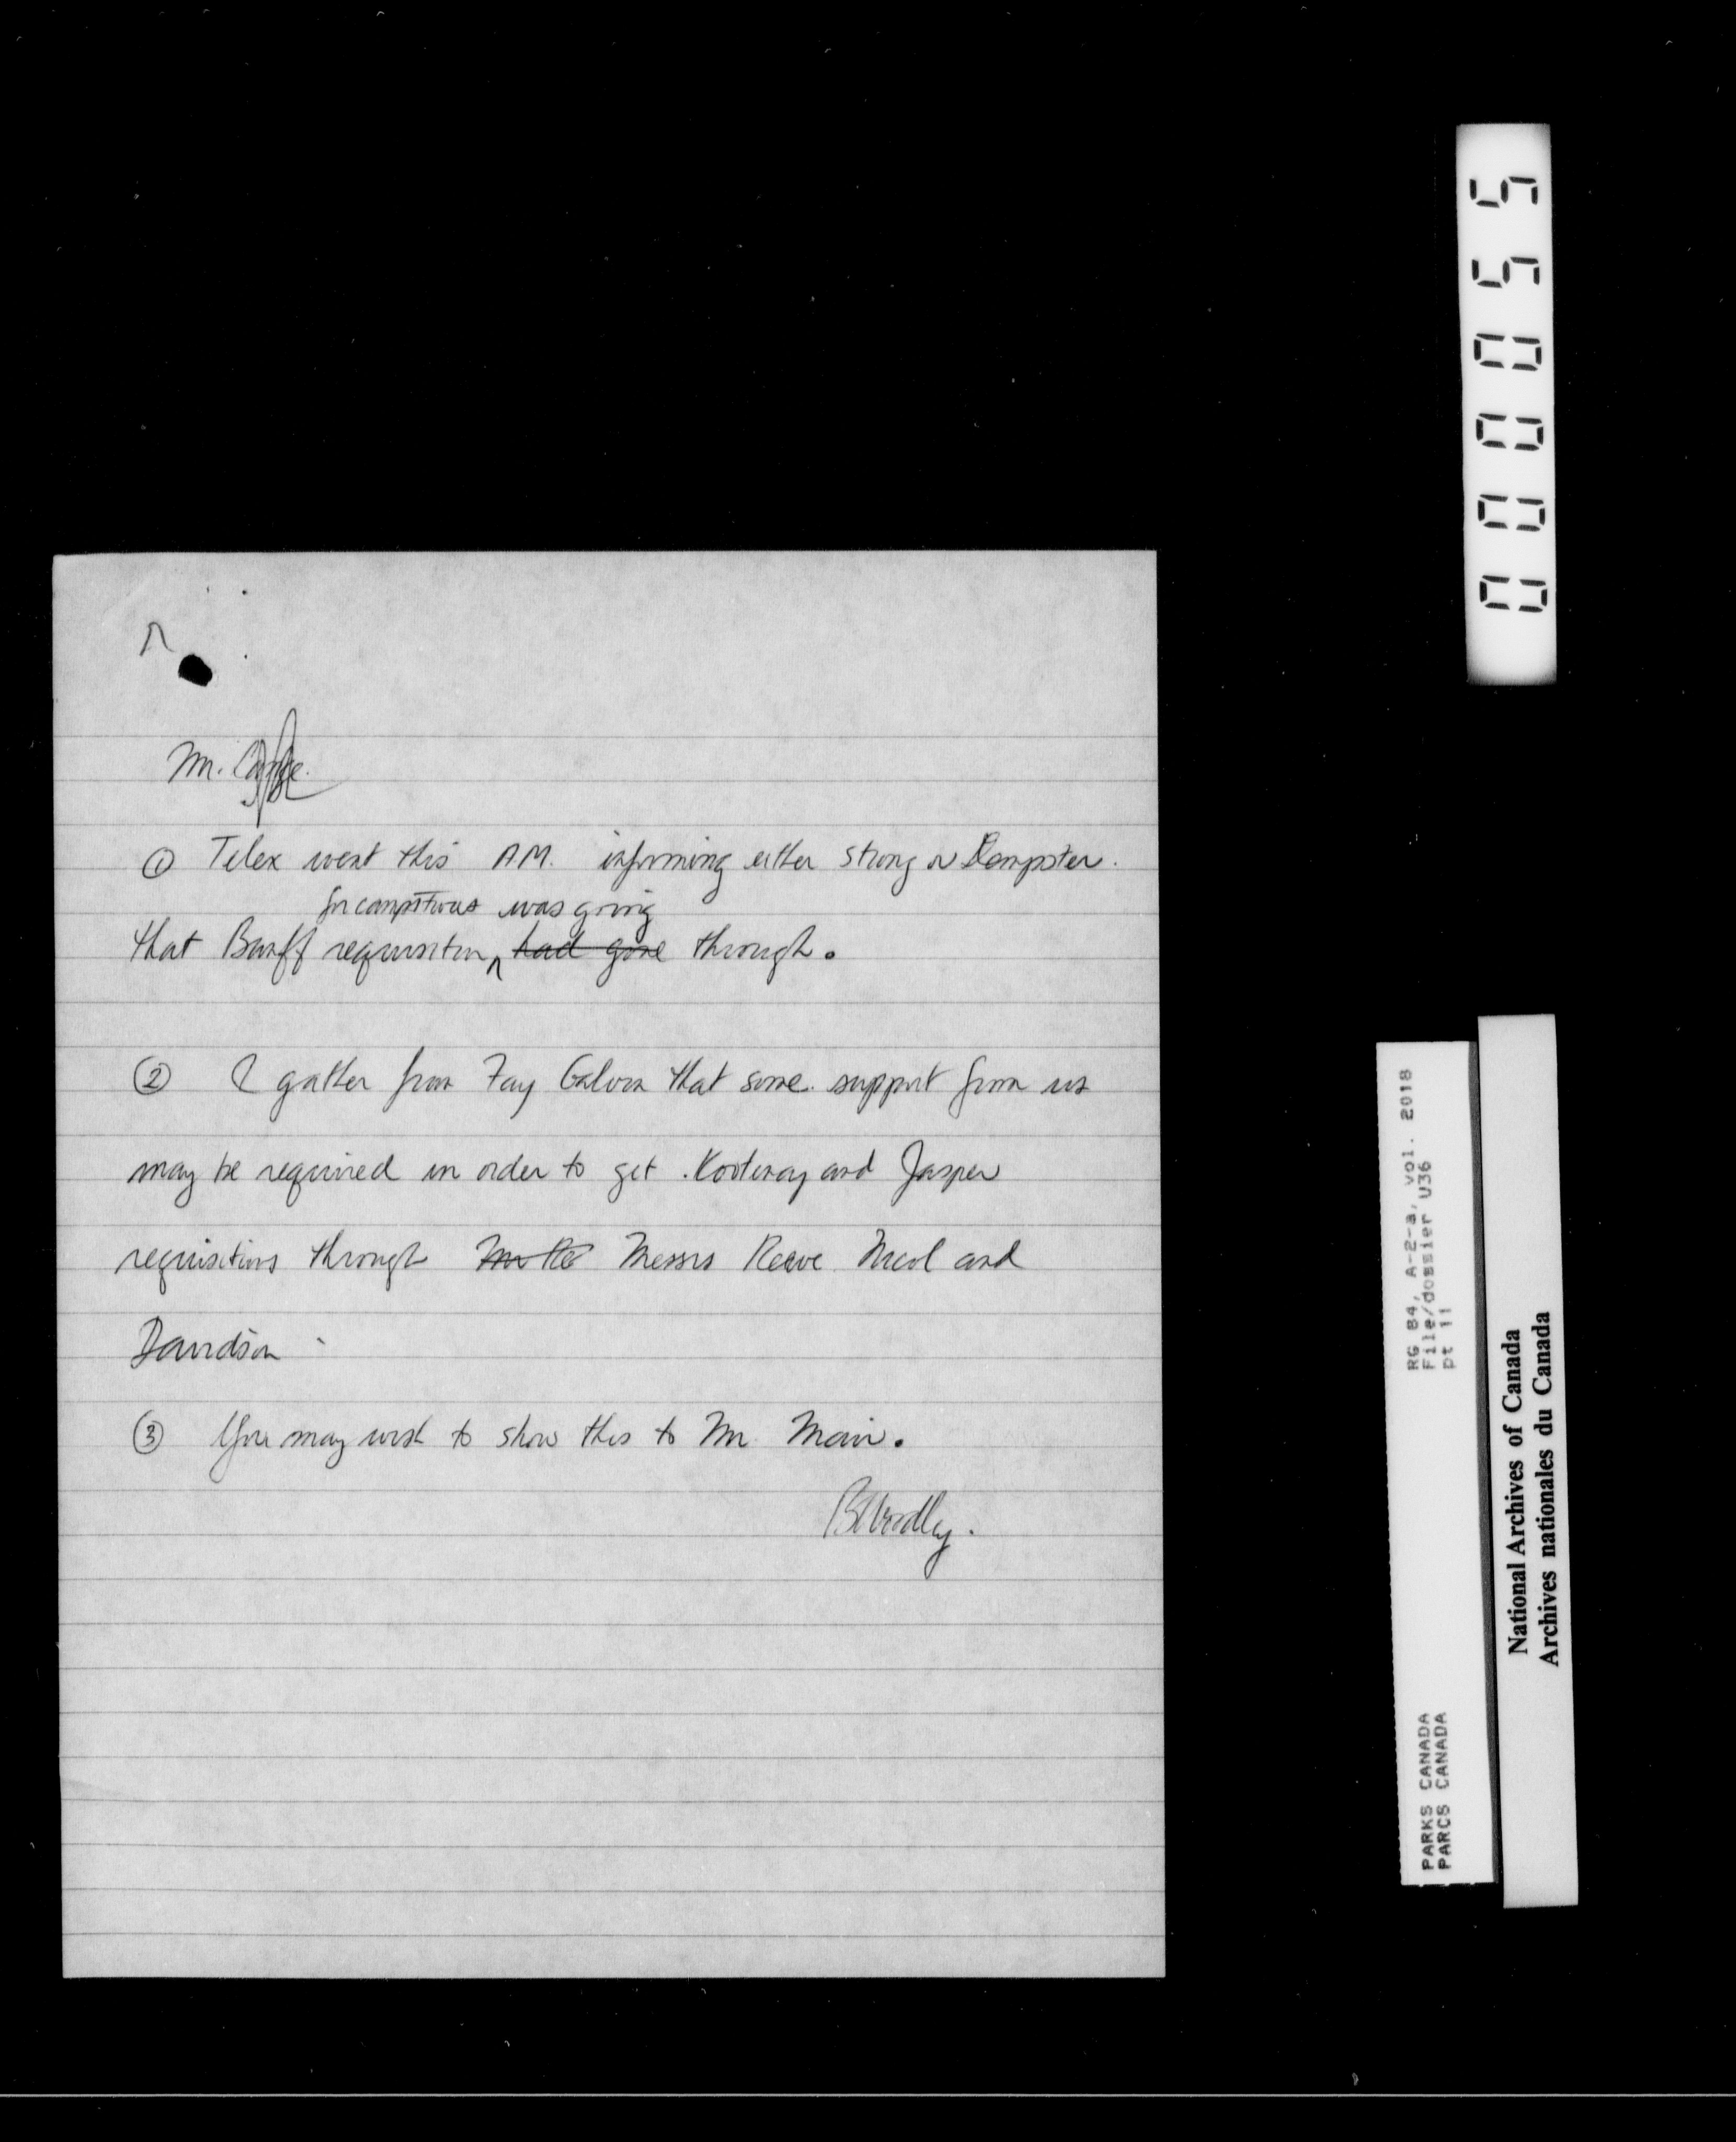 Mr.
① Telex went this A.M. informing either Strong or Dempster.
for campstoves was going
that Banff requisition ^ had gone through.
② I gather from Fay Galvin that some support from us
may be required in order to get Kootenay and Jasper
requisitions through Messrs Reeve Nicol and
Davidson
③ You may wish to show this to Mr. Main.
000055
RG 84, A-2-a, vol. 2018
File/dossier U36
pt 11
PARKS CANADA
PARCS CANADA
National Archives of Canada
Archives nationales du Canada